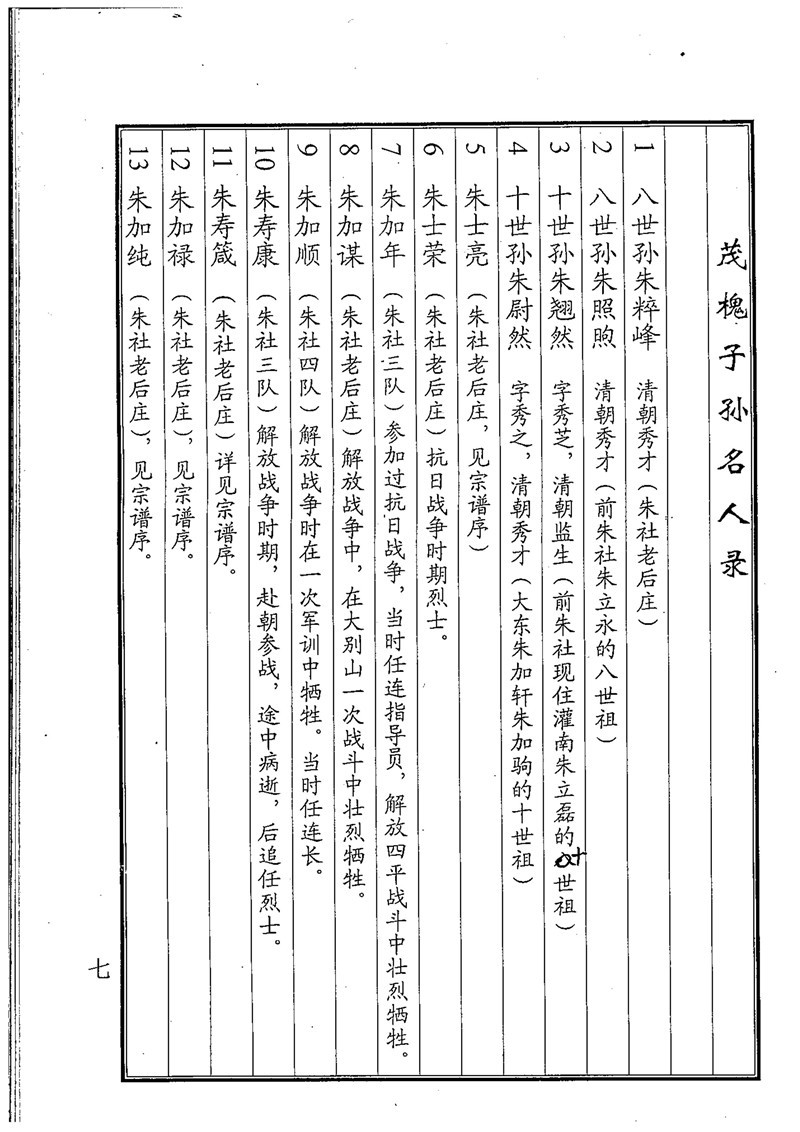 茂槐子孙名人录
1 八世孙朱粹峰 清朝秀才（朱社老后庄）
2 八世孙朱照煦 清朝秀才（前朱社朱立永的八世祖）
3 十世孙朱翘然 字秀芝，清朝监生（前朱社现住灌南朱立磊的十世祖）
4 十世孙朱尉然 字秀之，清朝秀才（大东朱加轩朱加驹的十世祖）
5 朱士亮（朱社老后庄，见宗谱序）
6 朱士荣（朱社老后庄）抗日战争时期烈士。
7 朱加年（朱社三队）参加过抗日战争，当时任连指导员，解放四平战斗中壮烈牺牲。
8 朱加谋（朱社老后庄）解放战争中，在大别山一次战斗中壮烈牺牲。
9 朱加顺（朱社四队）解放战争时在一次军训中牺牲。当时任连长。
10 朱寿康（朱社三队）解放战争时期，赴朝参战，途中病逝，后追任烈士。
11 朱寿箴（朱社老后庄）详见宗谱序。
12 朱加禄（朱社老后庄），见宗谱序。
13 朱加纯（朱社老后庄），见宗谱序。
七